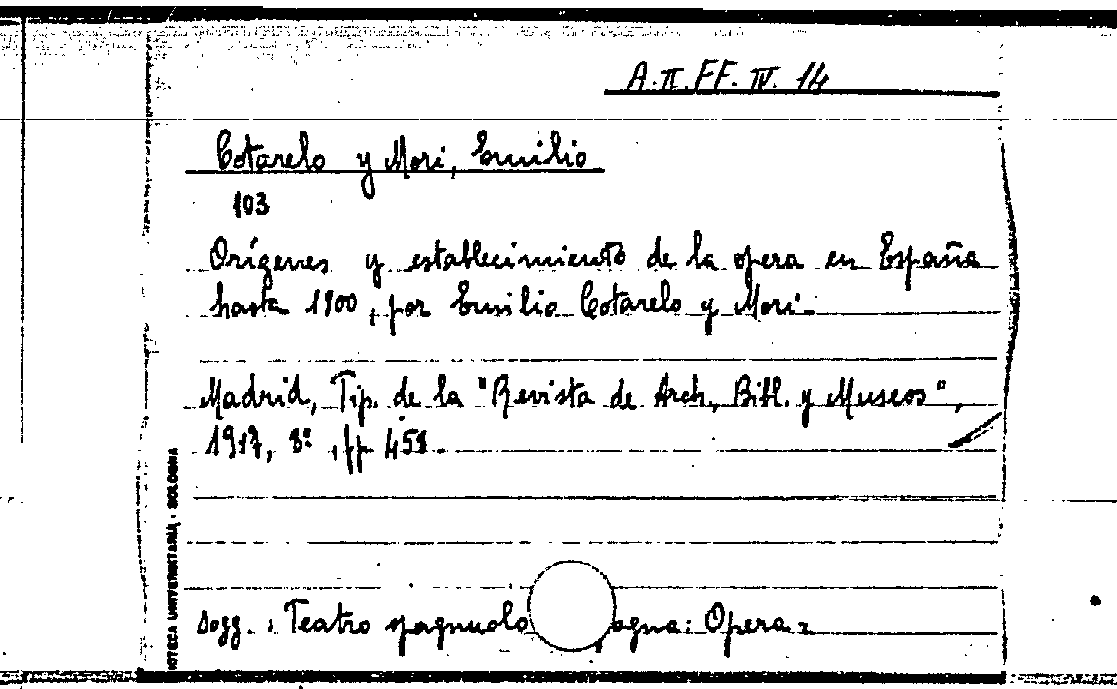 A.π.FF. IV. 14
Cotarelo y Mori, Emilio
103
Orígenes y establecimiento de la opera en España
hasta 1800, por Emilio Cotarelo y Mori.
Madrid, Tip. de la "Revista de Arch., Bibl. y Museos",
1917, 8º, pp. 458.
Sogg.: Teatro spagnuolo pagna: Opera.
IOTECA UNIVERSITARIA - BOLOGNA